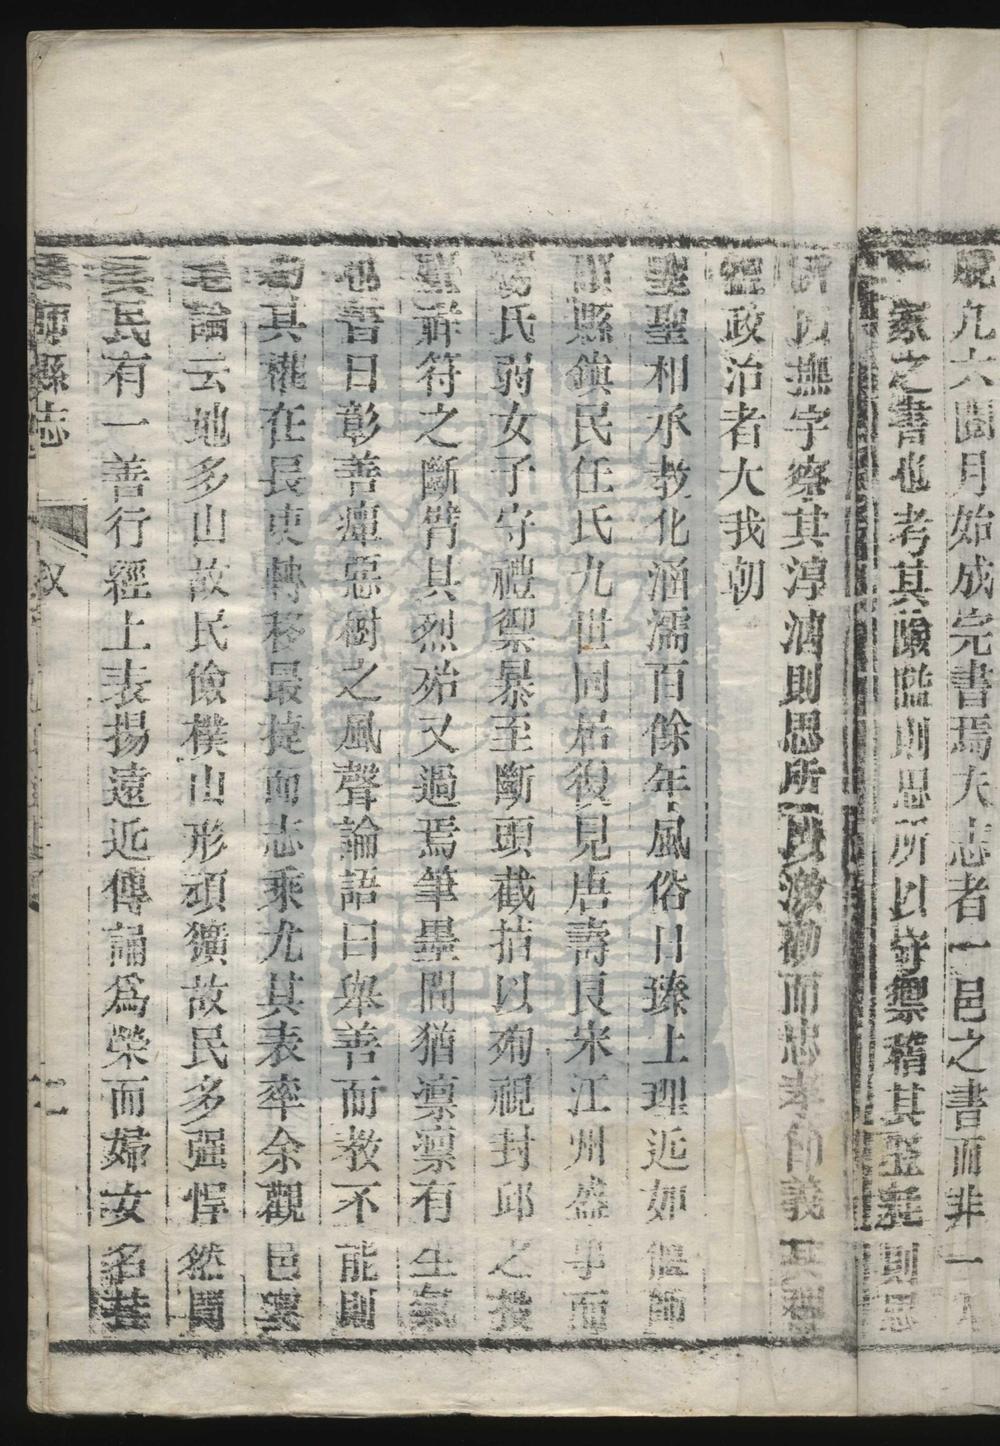 九六閱月始成完書焉夫志者一邑之書而非一人
一家之書也考其險隘則思所以守禦稽其盈耗則思
所以撫字察其淳澆則思所以激勸而忠孝節義
政治者大我朝
聖聖相承教化涵濡百餘年風俗日臻上理近如偃師
顧縣鎮民任氏九世同居復見唐壽良宋江州盛事而
楊氏弱女子守禮禦暴至斷頭截指以殉視封邱之投
祥符之斷臂其烈殆又過焉筆墨間猶凛凛有生氣
也書曰彰善癉惡樹之風聲論語曰舉善而教不能則
勸其權在長吏轉移最捷而志乘尤其表率余觀邑
論云地多山故民儉樸山形頑獷故民多强悍然聞
民有一善行經上表揚遠近傳誦爲榮而婦女名
偃師縣志 叙